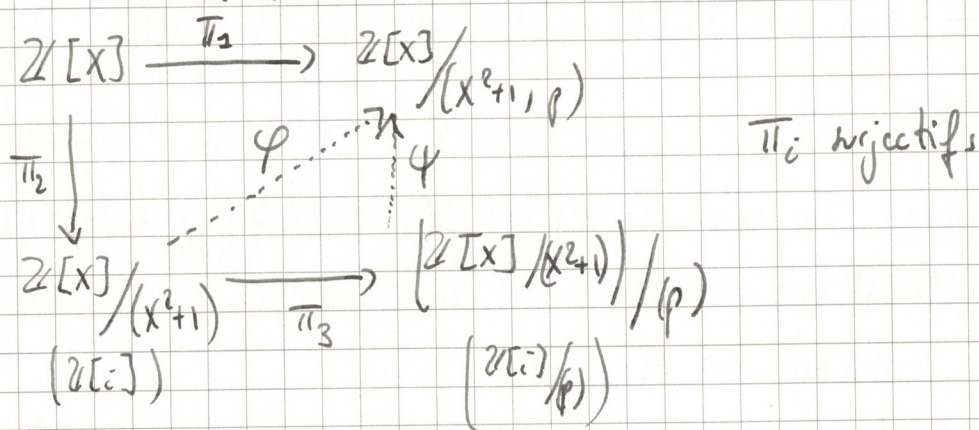 ℤ[X] π₁ ℤ[X]/(X²+1, p)
π₂ φ ψ πᵢ surjectifs
ℤ[X]/(X²+1) π₃ (ℤ[X]/(X²+1))/(p)
(ℤ[i]) (ℤ[i]/(p))